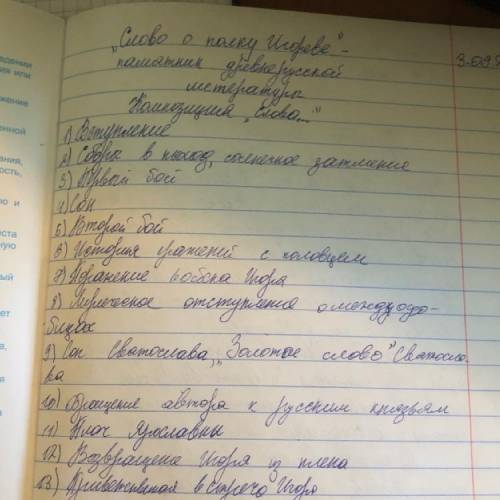 „Слово о полку Игореве" -
памятник древнерусской
литературы
Композиция „Слова..."
1) Вступление
2) Сборы в поход, солнечное затмение
3) Первый бой
4) Сон
5) Второй бой
6) История сражений с половцем
7) Поражение войска Игоря
8) Лирическое отступление о междоусо-
бицах
9) Сон Святослава, „Золотое слово" Святосла-
ва
10) Обращение автора к русским князьям
11) Плач Ярославны
12) Возвращение Игоря из плена
13) Приветственная встреча Игоря
ведении
ия или
жение
венной
ания,
ость,
ю и
места
ную
ый
ует